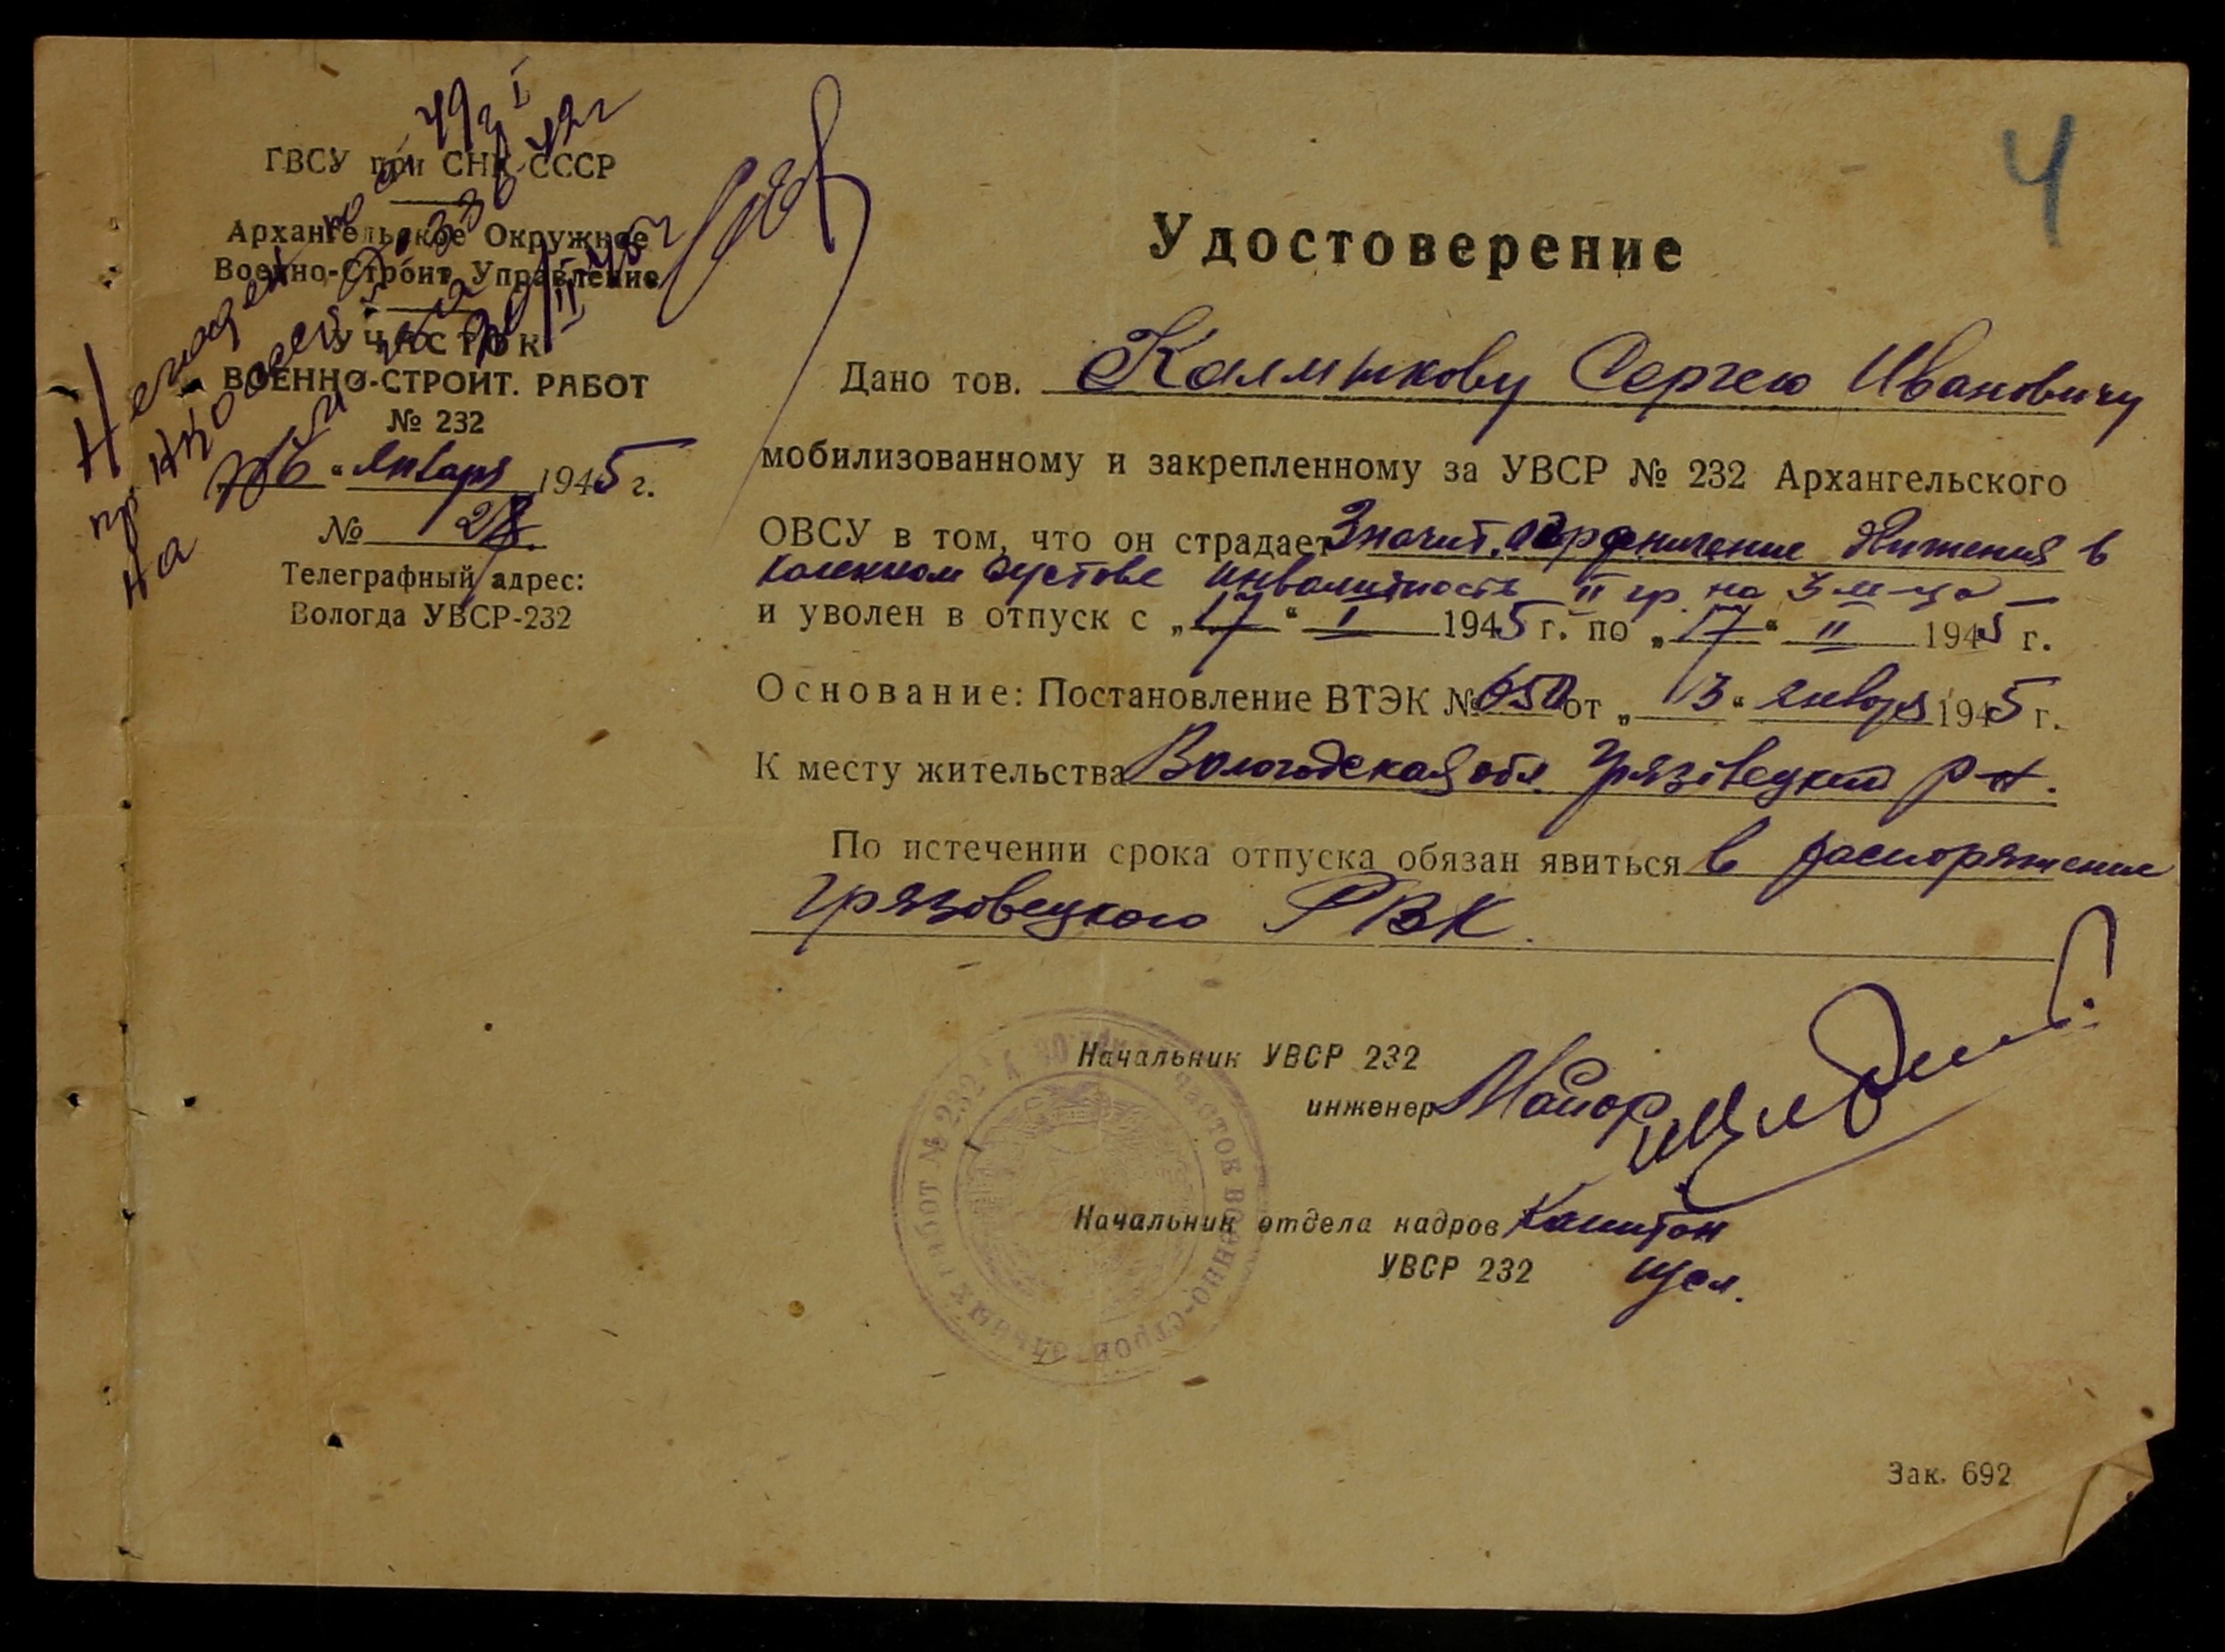 4
ГВСУ при СНК СССР
Архангельское Окружное
Военно-Строит. Управление
УЧАСТОК
ВОЕННО-СТРОИТ. РАБОТ
№ 232
"16" января 1945 г.
№ 28.
Телеграфный адрес:
Вологда УВСР-232
Негоден по
пр. НКО
на
Удостоверение
Дано тов. Калмыкову Сергею Ивановичу
мобилизованному и закрепленному за УВСР № 232 Архангельского
ОВСУ в том, что он страдает Значит. ограничение движения в
коленном суставе инвалидность II гр. на 3 м-ца
и уволен в отпуск с „17“ I 1945 г. по „17“ II 1945 г.
Основание: Постановление ВТЭК № 650 от „13“ января 1945 г.
К месту жительства Вологодская обл. Грязовецкий р-н.
По истечении срока отпуска обязан явиться в распоряжение
Грязовецкого РВК.
Начальник УВСР 232
инженер Майор
Начальник отдела кадров Капитан
УВСР 232
УЧАСТОК ВОЕННО-СТРОИТЕЛЬНЫХ РАБОТ № 232
Зак. 692